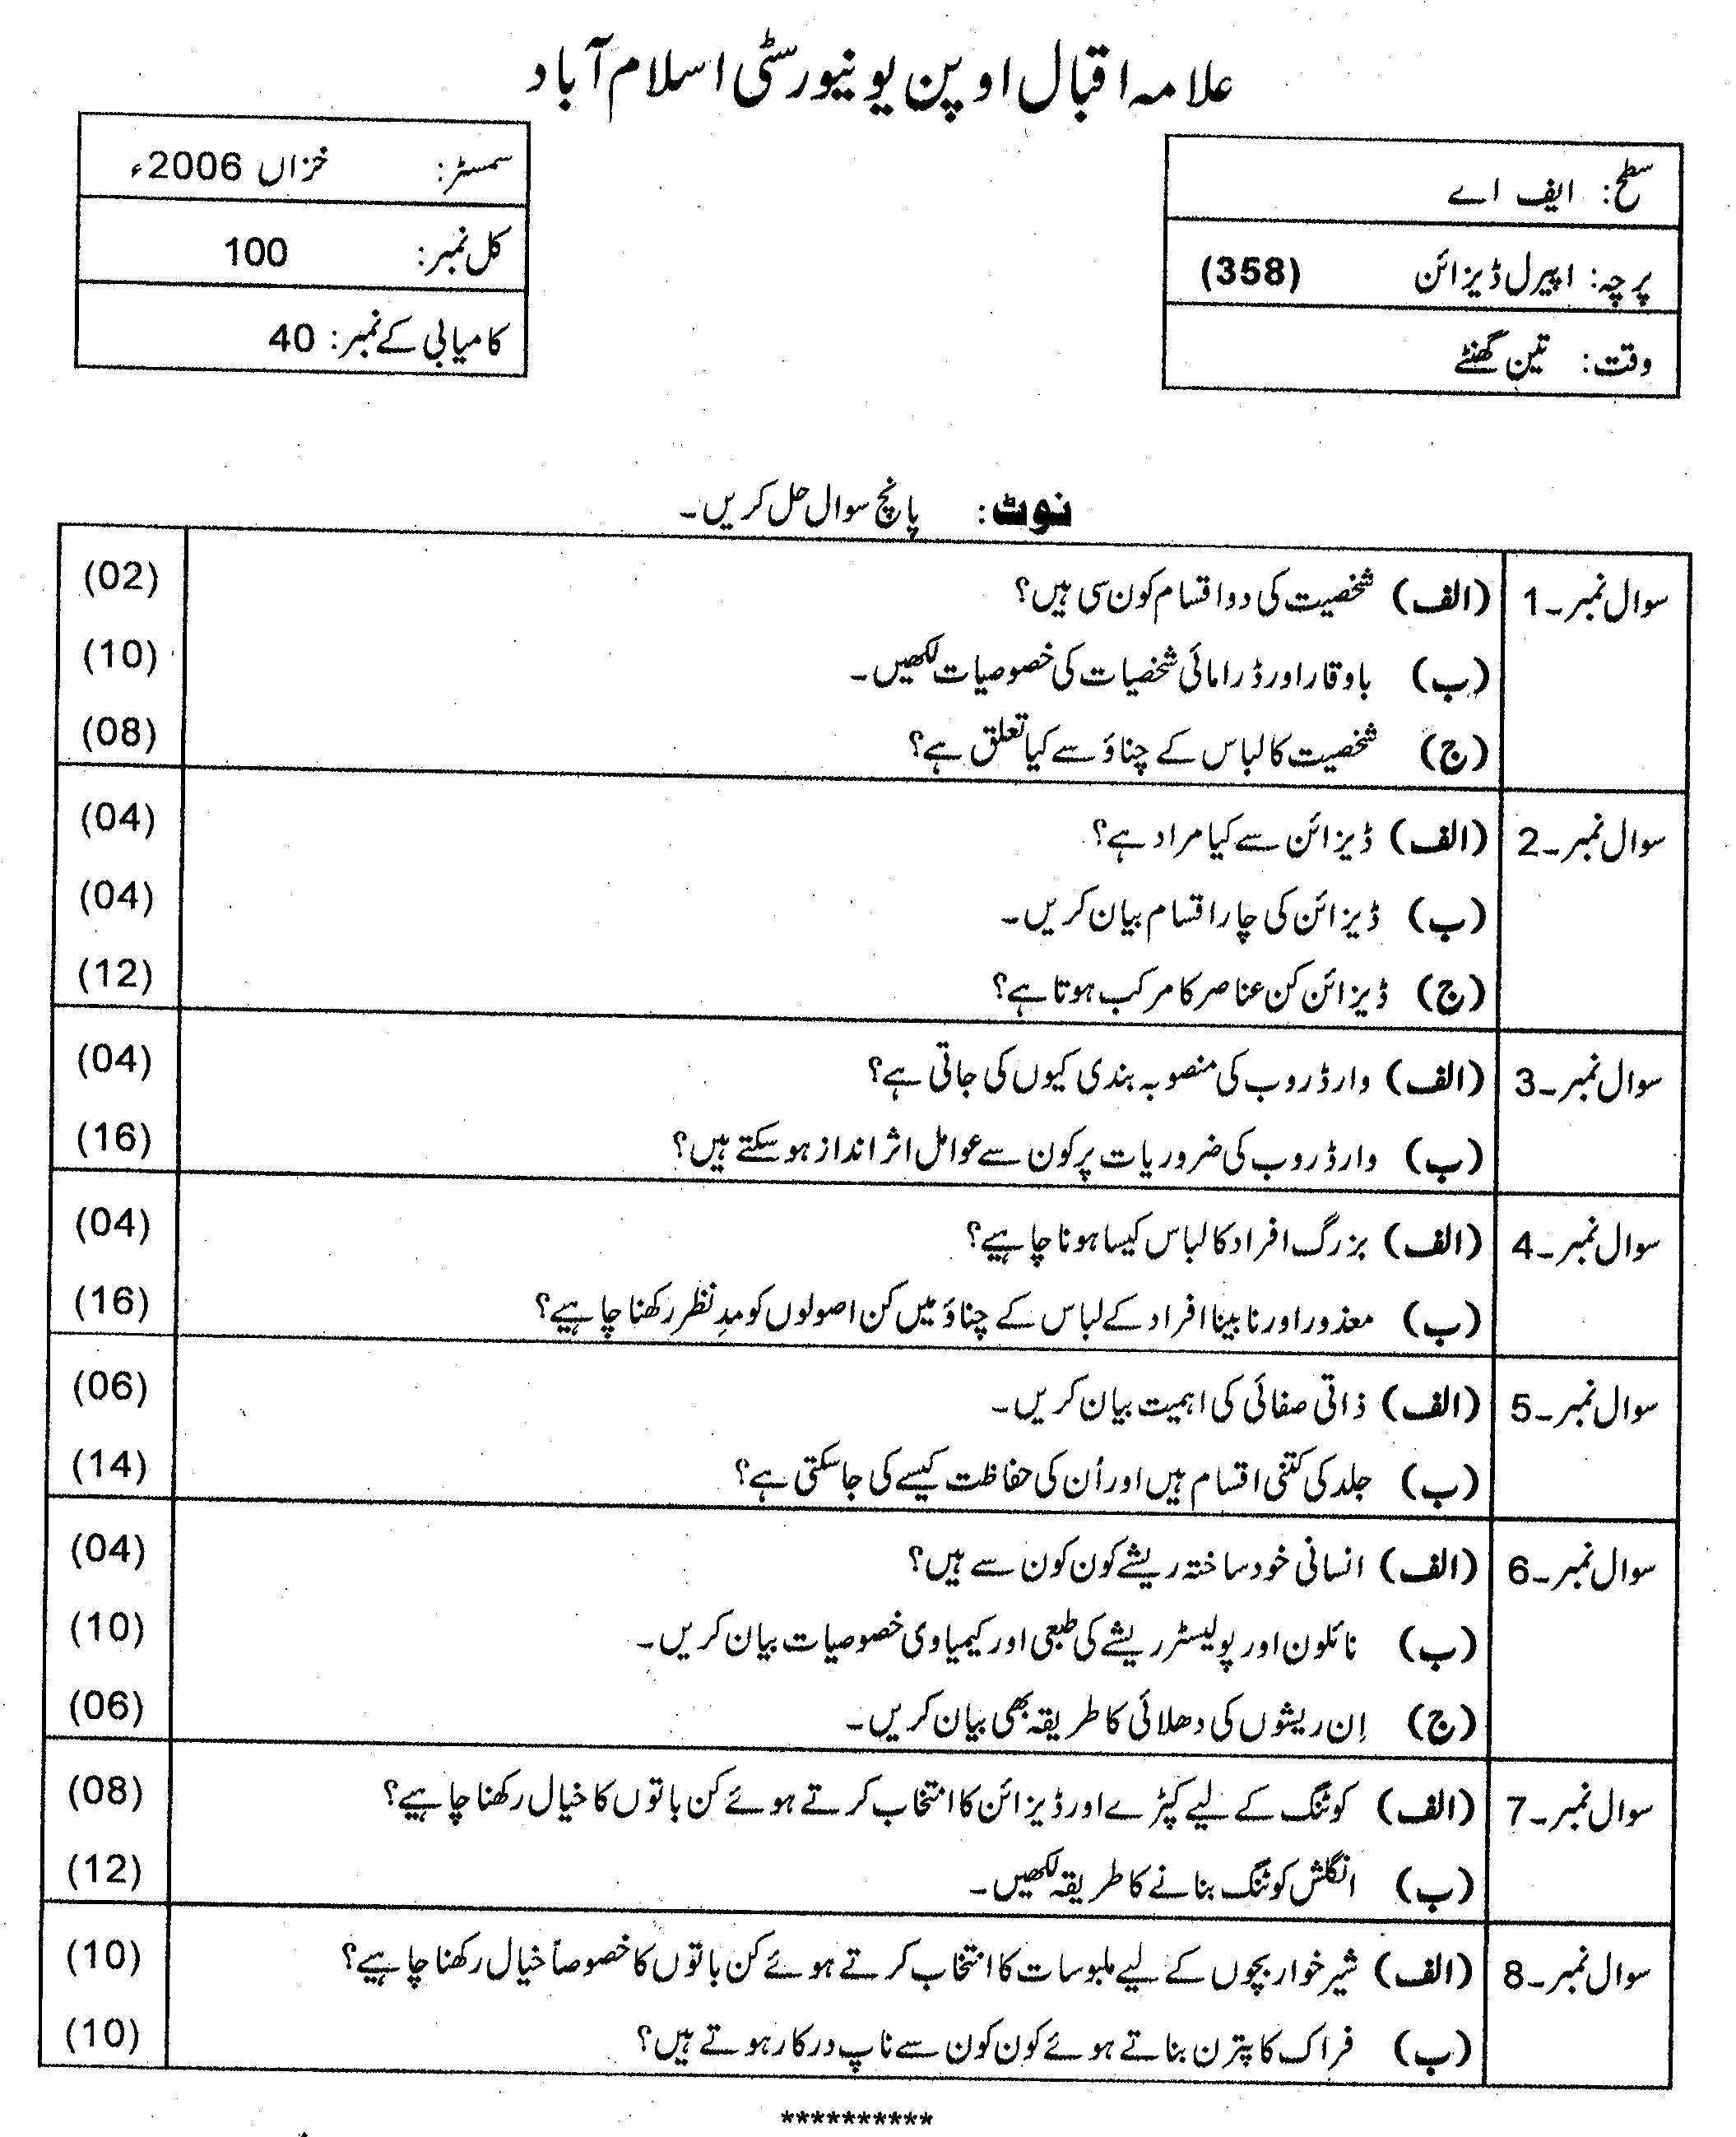 علامہ اقبال اوپن یونیورسٹی اسلام آباد
سطح: ایف اے
سمسٹر: خزاں 2006ء
پرچہ: اپیرل ڈیزائن (358)
کل نمبر: 100
وقت: تین گھنٹے
کامیابی کے نمبر: 40
نوٹ: پانچ سوال حل کریں۔
سوال نمبر۔1 (الف) شخصیت کی دو اقسام کون سی ہیں؟ (02)
(ب) باوقار اور ڈرامائی شخصیات کی خصوصیات لکھیں۔ (10)
(ج) شخصیت کا لباس کے چناؤ سے کیا تعلق ہے؟ (08)
سوال نمبر۔2 (الف) ڈیزائن سے کیا مراد ہے؟ (04)
(ب) ڈیزائن کی چار اقسام بیان کریں۔ (04)
(ج) ڈیزائن کن عناصر کا مرکب ہوتا ہے؟ (12)
سوال نمبر۔3 (الف) وارڈروب کی منصوبہ بندی کیوں کی جاتی ہے؟ (04)
(ب) وارڈروب کی ضروریات پر کون سے عوامل اثر انداز ہو سکتے ہیں؟ (16)
سوال نمبر۔4 (الف) بزرگ افراد کا لباس کیسا ہونا چاہیے؟ (04)
(ب) معذور اور نابینا افراد کے لباس کے چناؤ میں کن اصولوں کو مدِ نظر رکھنا چاہیے؟ (16)
سوال نمبر۔5 (الف) ذاتی صفائی کی اہمیت بیان کریں۔ (06)
(ب) جلد کی کتنی اقسام ہیں اور اُن کی حفاظت کیسے کی جا سکتی ہے؟ (14)
سوال نمبر۔6 (الف) انسانی خود ساختہ ریشے کون کون سے ہیں؟ (04)
(ب) نائلون اور پولیسٹر ریشے کی طبعی اور کیمیاوی خصوصیات بیان کریں۔ (10)
(ج) اِن ریشوں کی دھلائی کا طریقہ بھی بیان کریں۔ (06)
سوال نمبر۔7 (الف) کوٹنگ کے لیے کپڑے اور ڈیزائن کا انتخاب کرتے ہوئے کن باتوں کا خیال رکھنا چاہیے؟ (08)
(ب) انگلش کوٹنگ بنانے کا طریقہ لکھیں۔ (12)
سوال نمبر۔8 (الف) شیر خوار بچوں کے لیے ملبوسات کا انتخاب کرتے ہوئے کن باتوں کا خصوصاً خیال رکھنا چاہیے؟ (10)
(ب) فراک کا پیٹرن بناتے ہوئے کون کون سے ناپ درکار ہوتے ہیں؟ (10)
**********